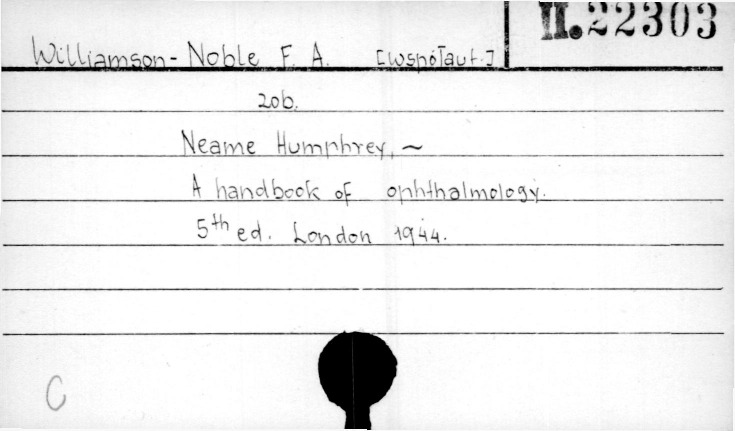 II.22303
Williamson-Noble F. A. [współaut.]
zob.
Neame Humphrey, ~
A handbook of ophthalmology.
5th ed. London 1944.
C